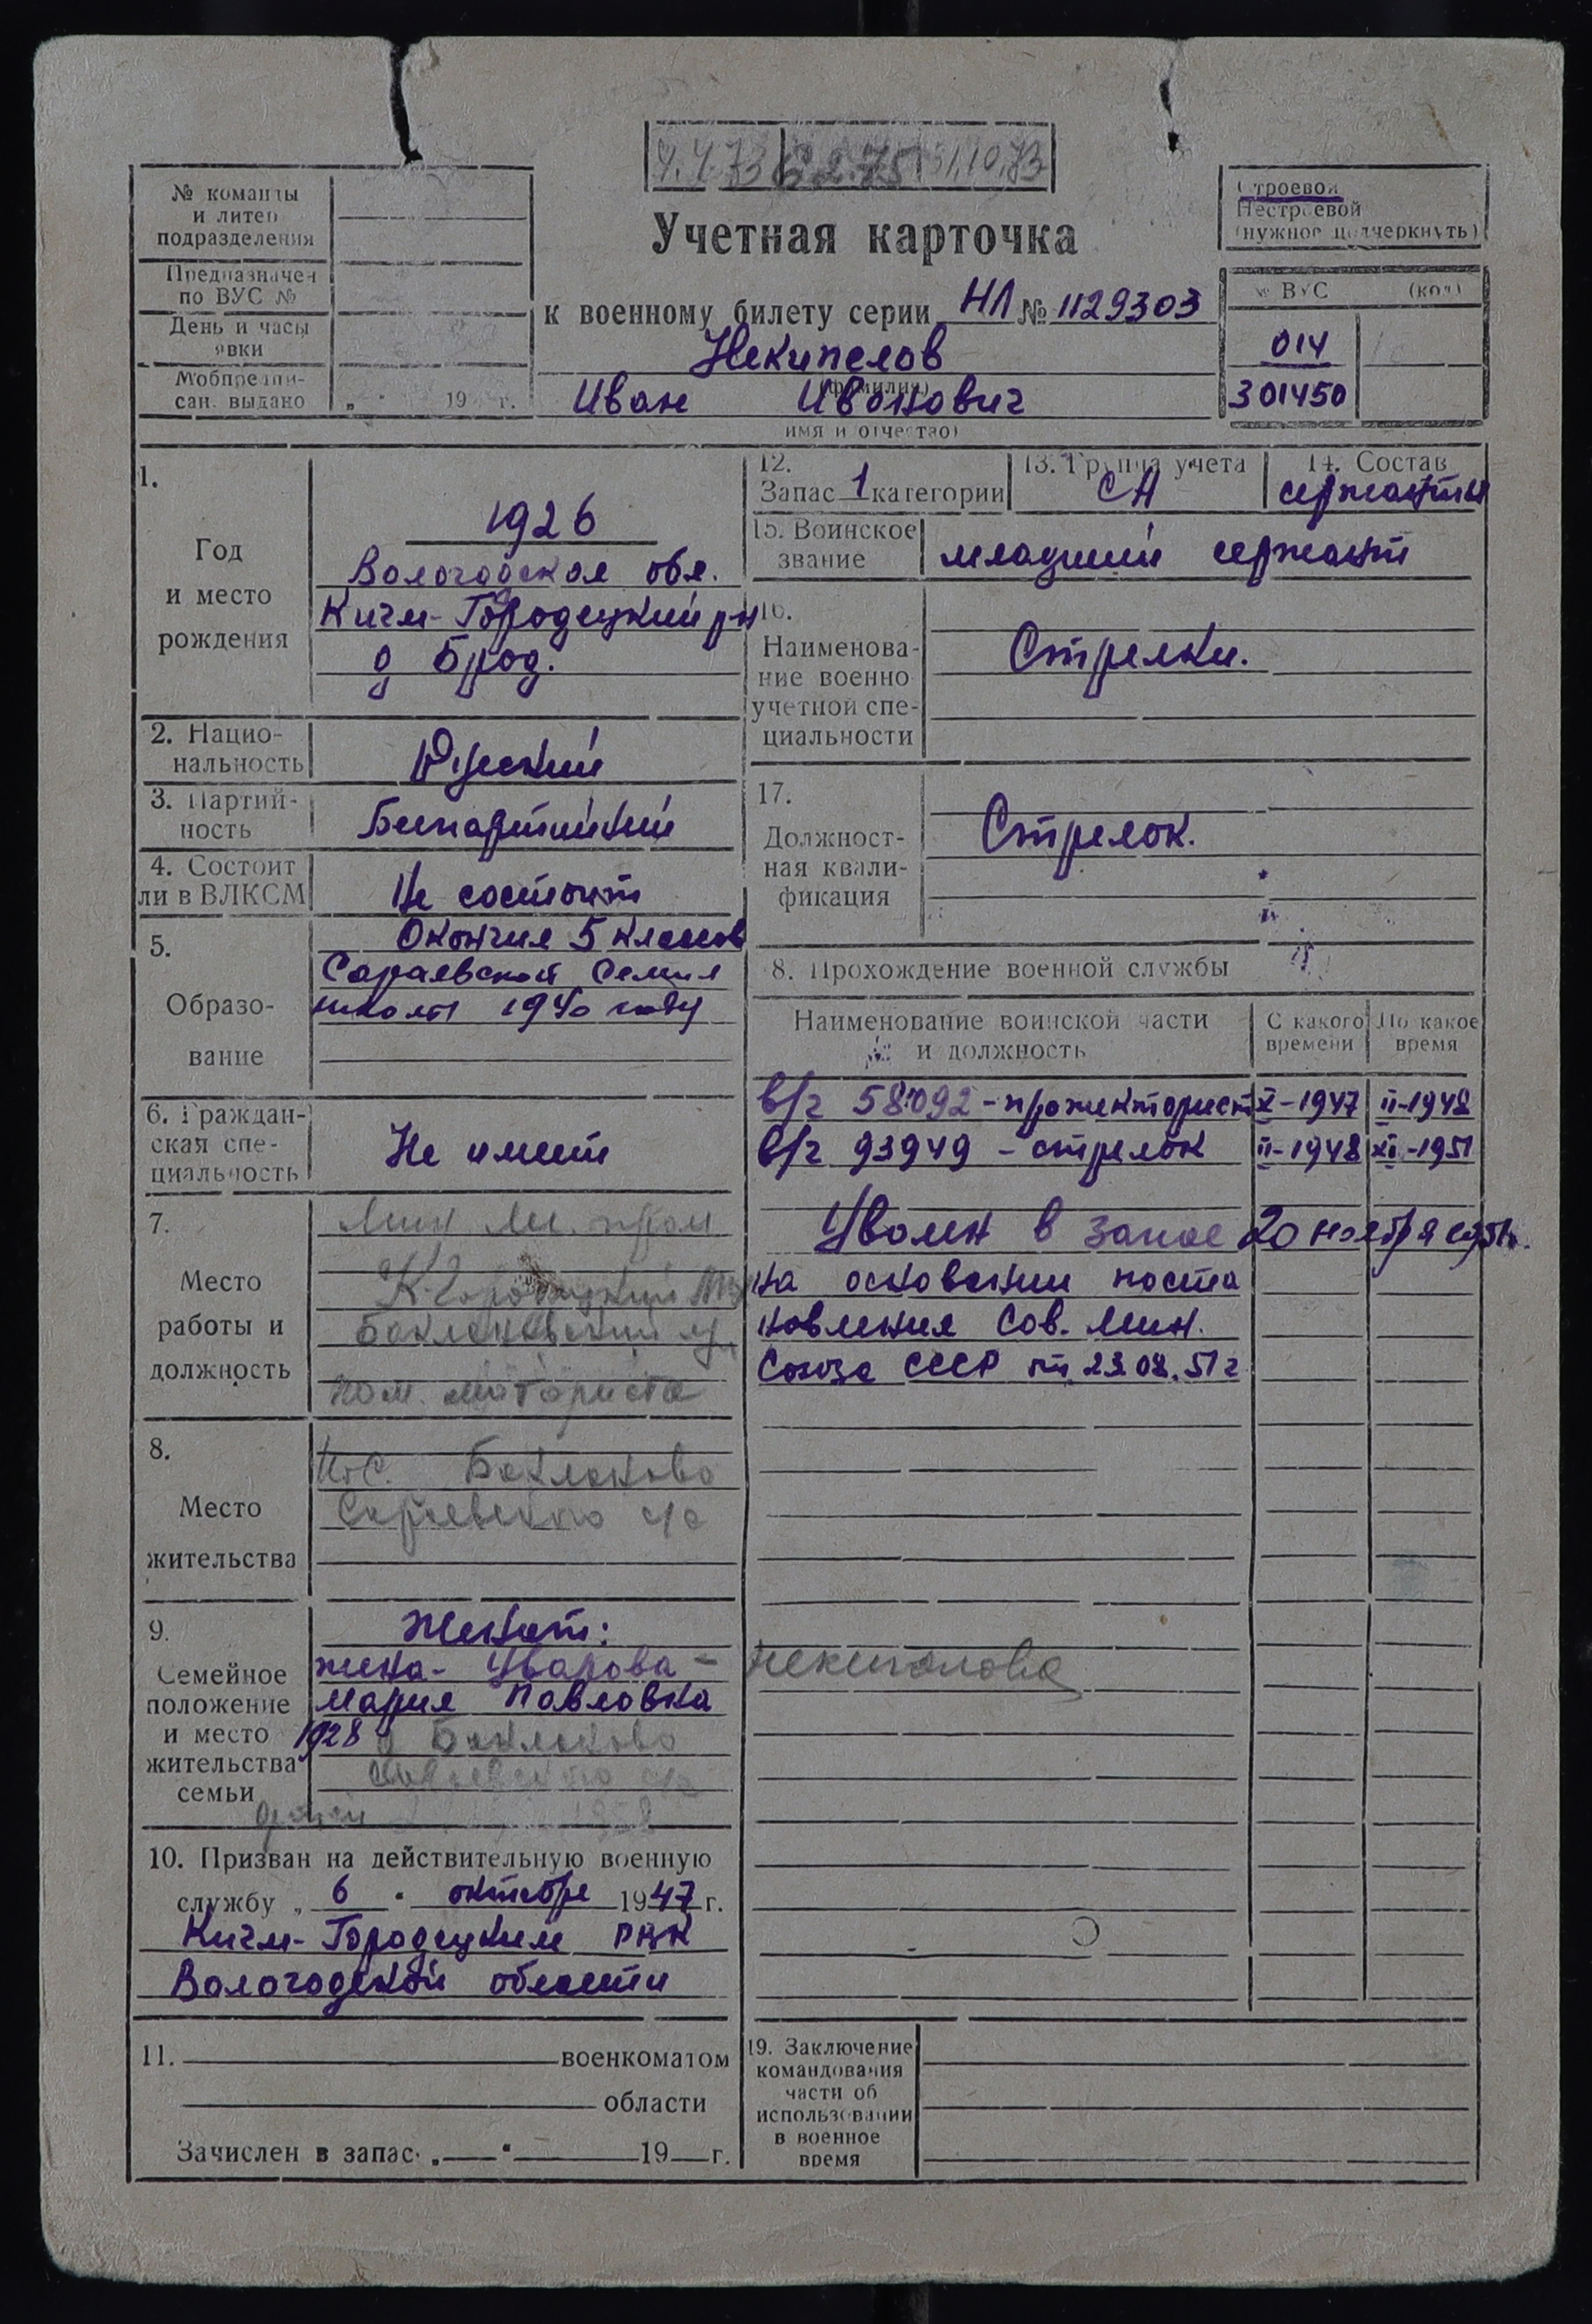 4.4.73 6.2.75 31.10.73
№ команды
и литер
подразделения
Предназначен
по ВУС №
День и часы
явки
Мобпредпи-
сан. выдано „ " 19 г.
Учетная карточка
к военному билету серии НЛ № 1129303
Некипелов
(фамилия)
Иван Иванович
имя и отчество)
Строевой
Нестроевой
(нужное подчеркнуть)
№ ВУС (код)
014
301450
1.
Год
и место
рождения
1926
Вологодская обл.
Кичм-Городецкий р-н
д Брод.
2. Нацио-
нальность
Русский
3. Партий-
ность
Беспартийный
4. Состоит
ли в ВЛКСМ
Не состоит
5.
Образо-
вание
Окончил 5 классов
Сараевской Семил
школы 1940 году
6. Граждан-
ская спе-
циальность
Не имеет
7.
Место
работы и
должность
К-Городецкий
Баклановский
пом. моториста
8.
Место
жительства
пос. Бакланово
Сараевского с/с
9.
Семейное
положение
и место
жительства
семьи
Женат:
жена- Уварова - Некипелова
Мария Павловна
1928 д Бакланово
Сараевского с/с
10. Призван на действительную военную
службу „ 6 " октября 1947 г.
Кичм-Городецким РВК
Вологодской области
11. военкоматом
области
Зачислен в запас „ " 19 г.
12.
Запас 1 категории
13. Группа учета
СА
14. Состав
сержанты
15. Воинское
звание
младший сержант
16.
Наименова-
ние военно
учетной спе-
циальности
Стрелки.
17.
Должност-
ная квали-
фикация
Стрелок.
8. Прохождение военной службы
Наименование воинской части
и должность
С какого
времени
По какое
время
в/ч 58092 - прожекторист X-1947 II-1948
в/ч 93949 - стрелок II-1948 XI-1951
Уволен в запас 20 ноября 1951г.
на основании поста
новления Сов. Мин.
Союза ССР от 23.08.51 г
19. Заключение
командования
части об
использовании
в военное
время